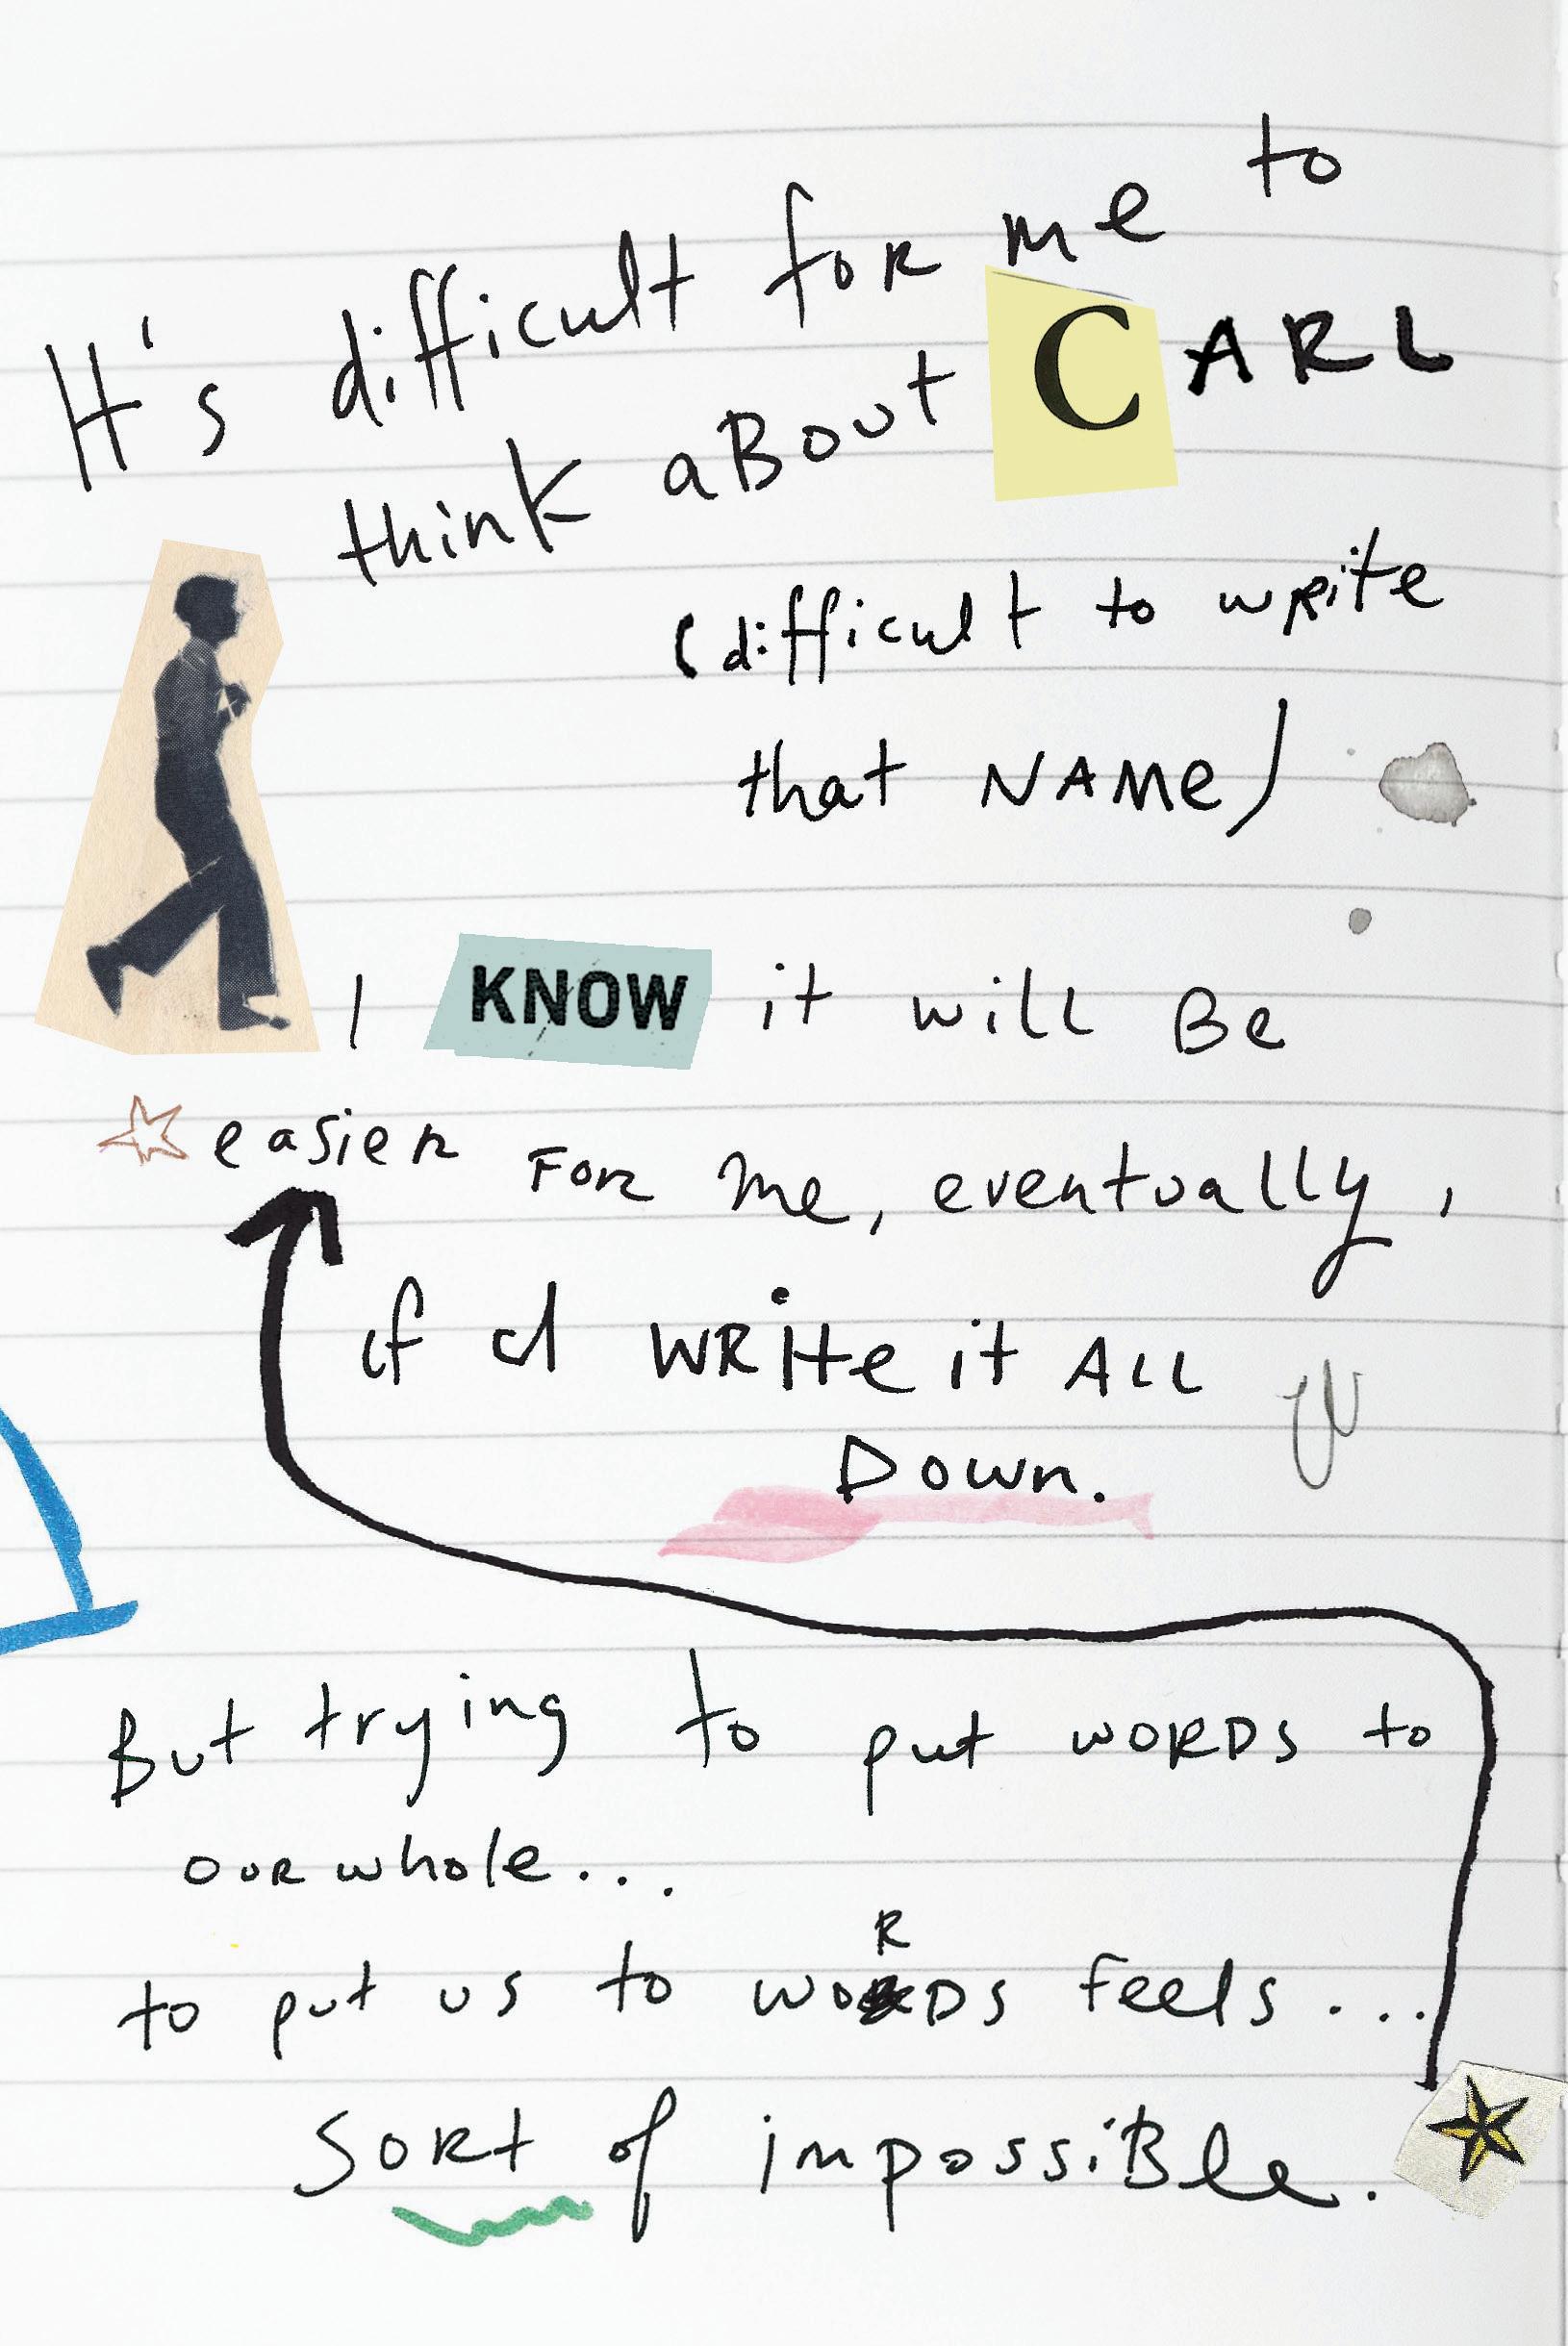 It's difficult for me to
think aBout CARL
(difficult to write
that NAMe)
I KNOW it will Be
easier For me, eventually,
if I WRite it ALL
Down.
But trying to put WORDS to
OUR whole...
to put us to WORDS feels...
SORt of impossiBle.